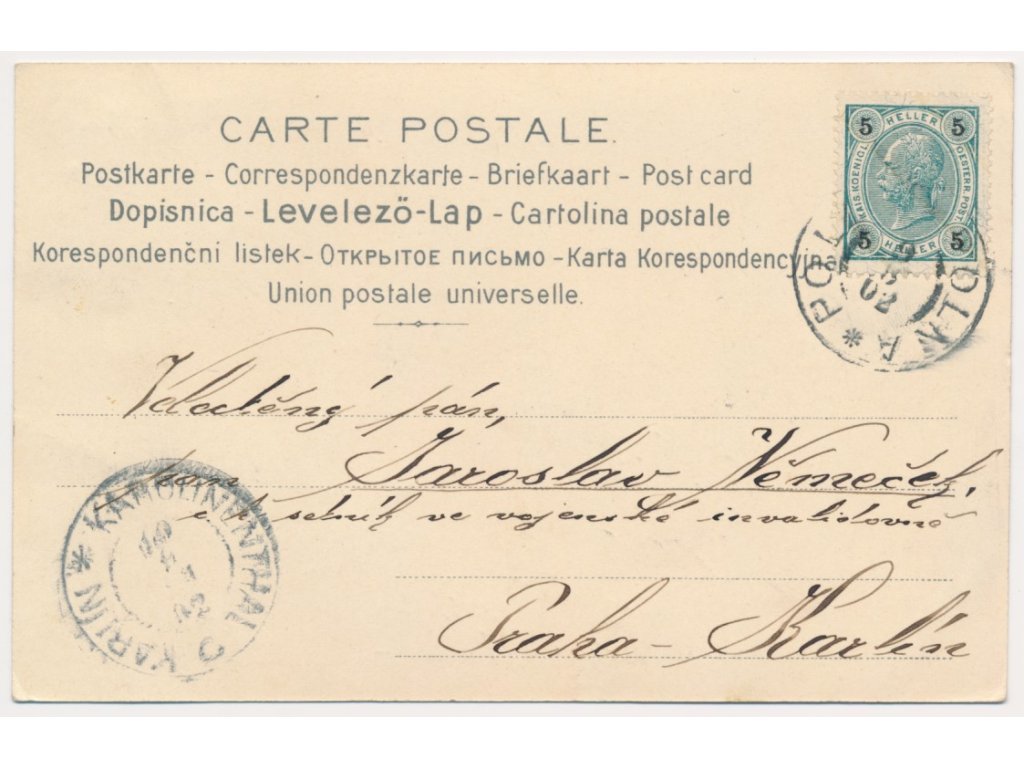 CARTE POSTALE.
Postkarte - Correspondenzkarte - Briefkaart - Post card
Dopisnica - Levelező-Lap - Cartolina postale
Korespondenční listek - Открытое письмо - Karta Korespondencyjna
Union postale universelle.
5 HELLER 5
KAIS. KOENIGL. OESTERR. POST.
5 HELLER 5
POLNA * POL
02
Veleděný pán,
pan Jaroslav Němeček,
setník ve vojenské invalidovně
Praha - Karlín
* KAROLINENTHAL
KARLIN
10
02